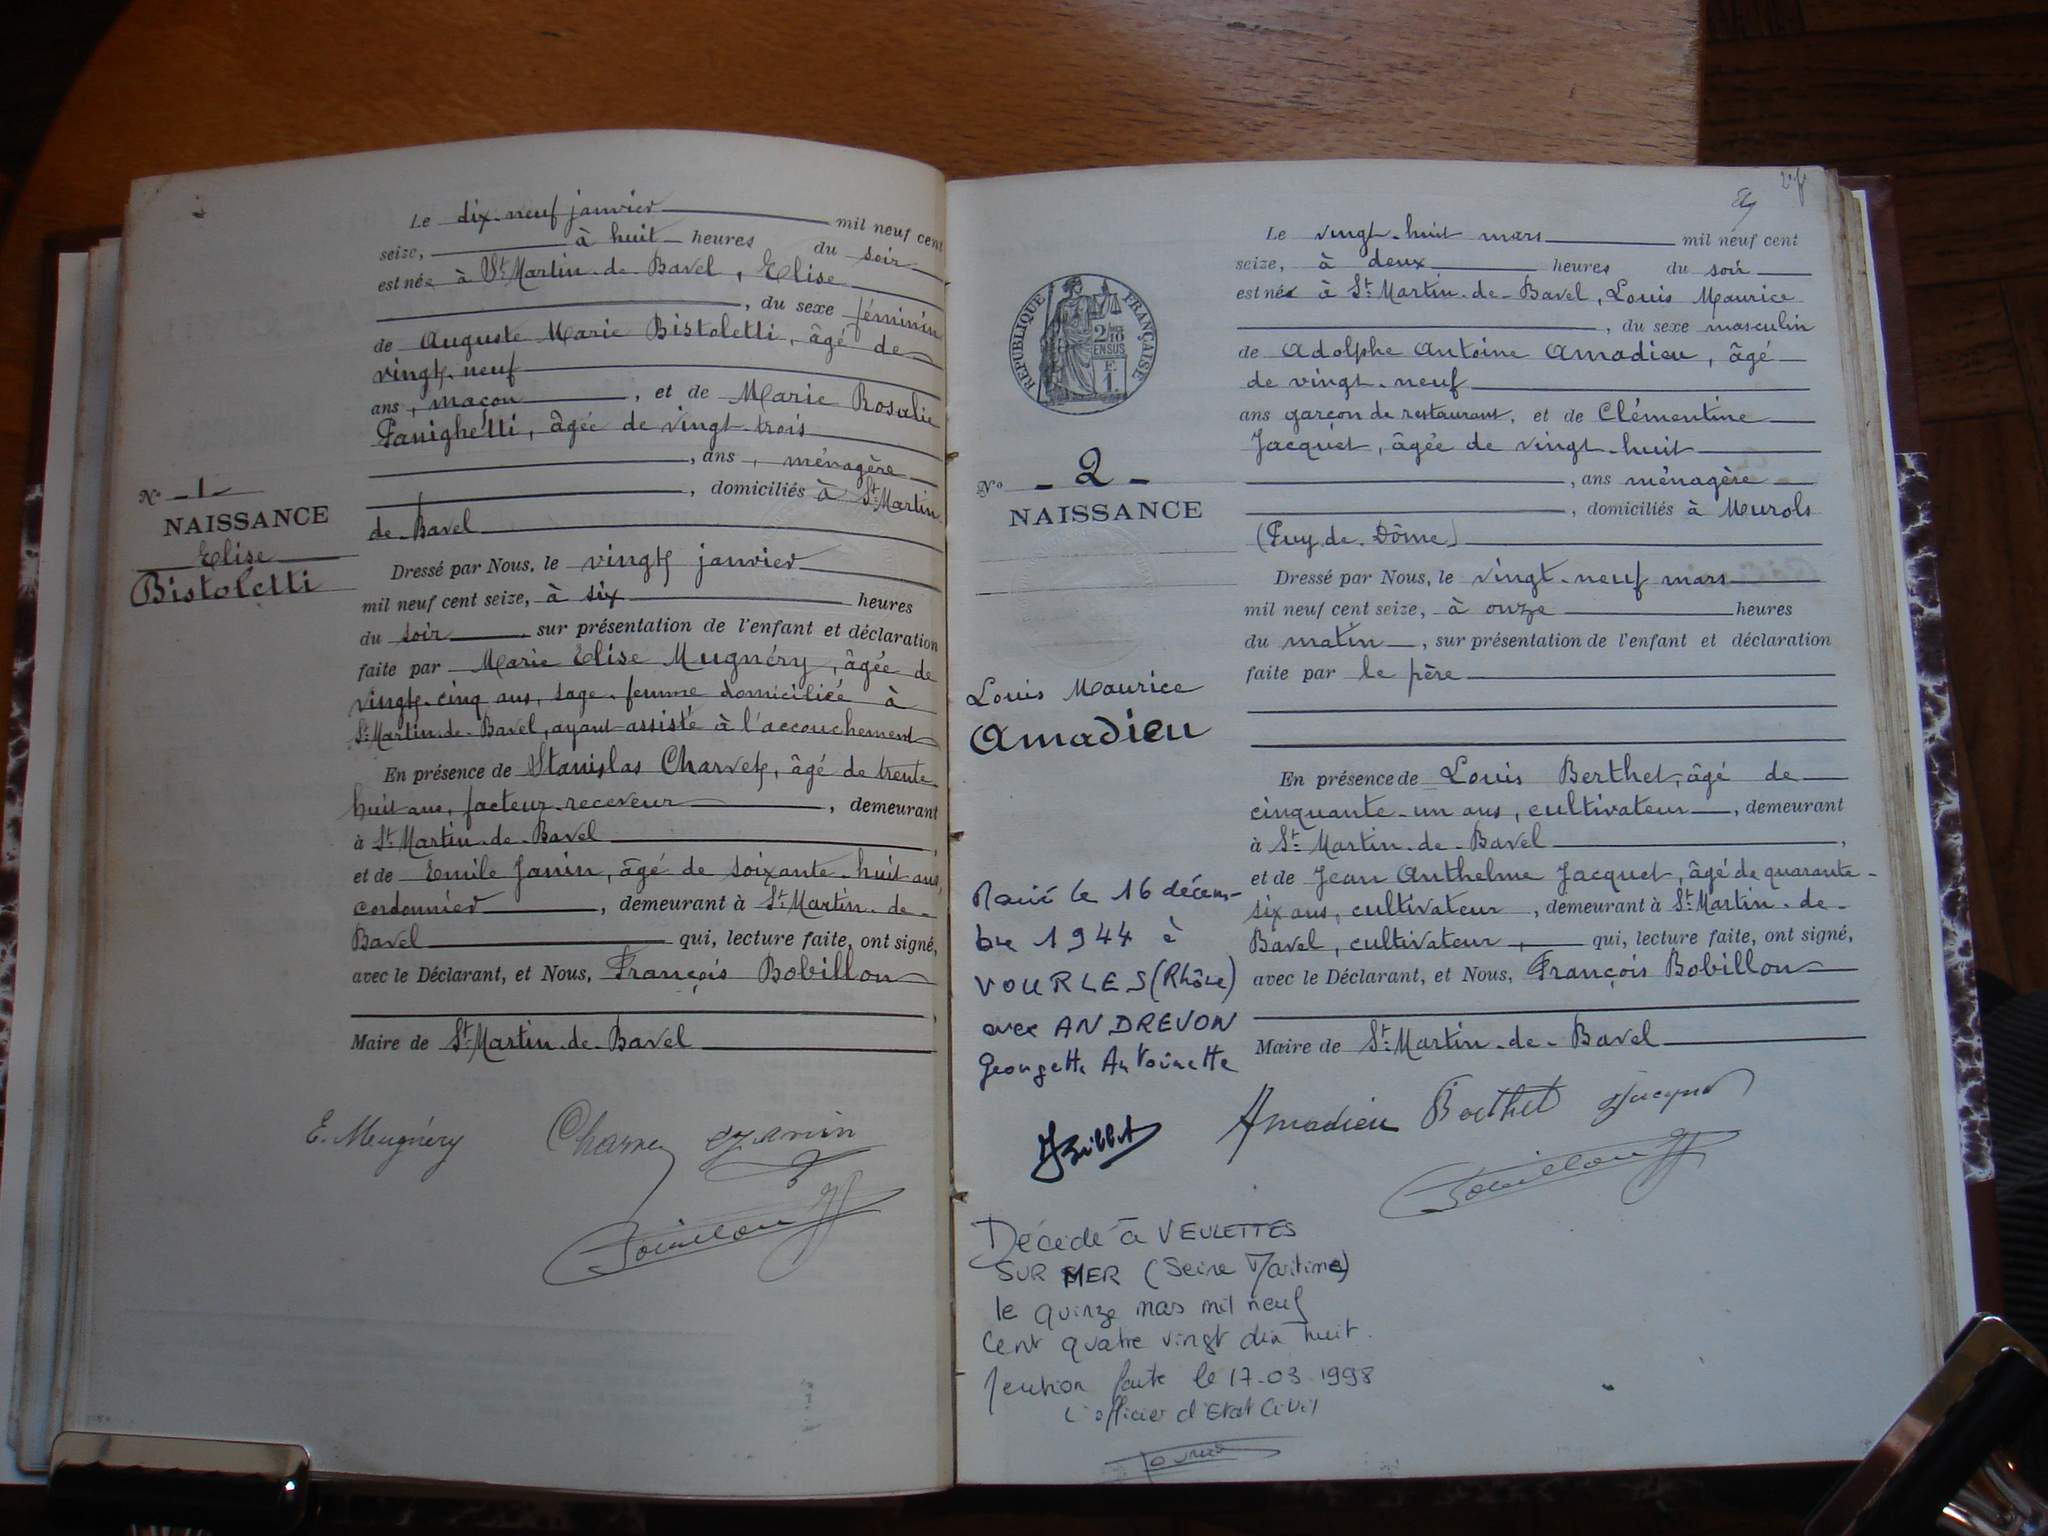 Le dix-neuf janvier mil neuf cent
seize, à huit heures du soir
est née à St Martin-de-Bavel, Elise
, du sexe féminin
de Auguste Marie Bistoletti, âgé de
vingt-neuf
ans, maçon, et de Marie Rosalie
Panighetti, âgée de vingt-trois
, ans, ménagère
, domiciliés à St Martin
de-Bavel
Dressé par Nous, le vingt janvier
mil neuf cent seize, à six heures
du soir, sur présentation de l'enfant et déclaration
faite par Marie Elise Mugnéry, âgée de
vingt-cinq ans, sage-femme domiciliée à
St Martin-de-Bavel, ayant assisté à l'accouchement
En présence de Stanislas Charvet, âgé de trente
huit ans, facteur-receveur, demeurant
à St Martin-de-Bavel,
et de Emile Janin, âgé de soixante-huit ans,
cordonnier, demeurant à St Martin-de-
Bavel qui, lecture faite, ont signé,
avec le Déclarant, et Nous, François Bobillon
,
Maire de St Martin-de-Bavel
No -1-
NAISSANCE
Elise
Bistoletti
E. Mugnéry Janin
Bobillon
Le vingt-huit mars mil neuf cent
seize, à deux heures du soir
est né à St Martin-de-Bavel, Louis Maurice
, du sexe masculin
de Adolphe Antoine Amadieu, âgé
de vingt-neuf
ans garçon de restaurant, et de Clémentine
Jacquet, âgée de vingt-huit
, ans ménagère
, domiciliés à Murols
(Puy-de-Dôme)
Dressé par Nous, le vingt-neuf mars
mil neuf cent seize, à onze heures
du matin, sur présentation de l'enfant et déclaration
faite par le père
En présence de Louis Berthet, âgé de
cinquante-un ans, cultivateur, demeurant
à St Martin-de-Bavel,
et de Jean Anthelme Jacquet, âgé de quarante-
six ans, cultivateur, demeurant à St Martin-de-
Bavel, cultivateur, qui, lecture faite, ont signé,
avec le Déclarant, et Nous, François Bobillon
Maire de St Martin-de-Bavel
RÉPUBLIQUE FRANÇAISE
2/10
EN SUS
F.
1.
No -2-
NAISSANCE
Louis Maurice
Amadieu
Marié le 16 décem-
bre 1944 à
VOURLES (Rhône)
avec ANDREVON
Georgette Antoinette
Amadieu Berthet Jacquet
Bobillon
Décédé à VEULETTES
SUR MER (Seine Maritime)
le quinze mars mil neuf
cent quatre vingt dix huit.
Mention faite le 17-03-1998
L'officier d'Etat Civil